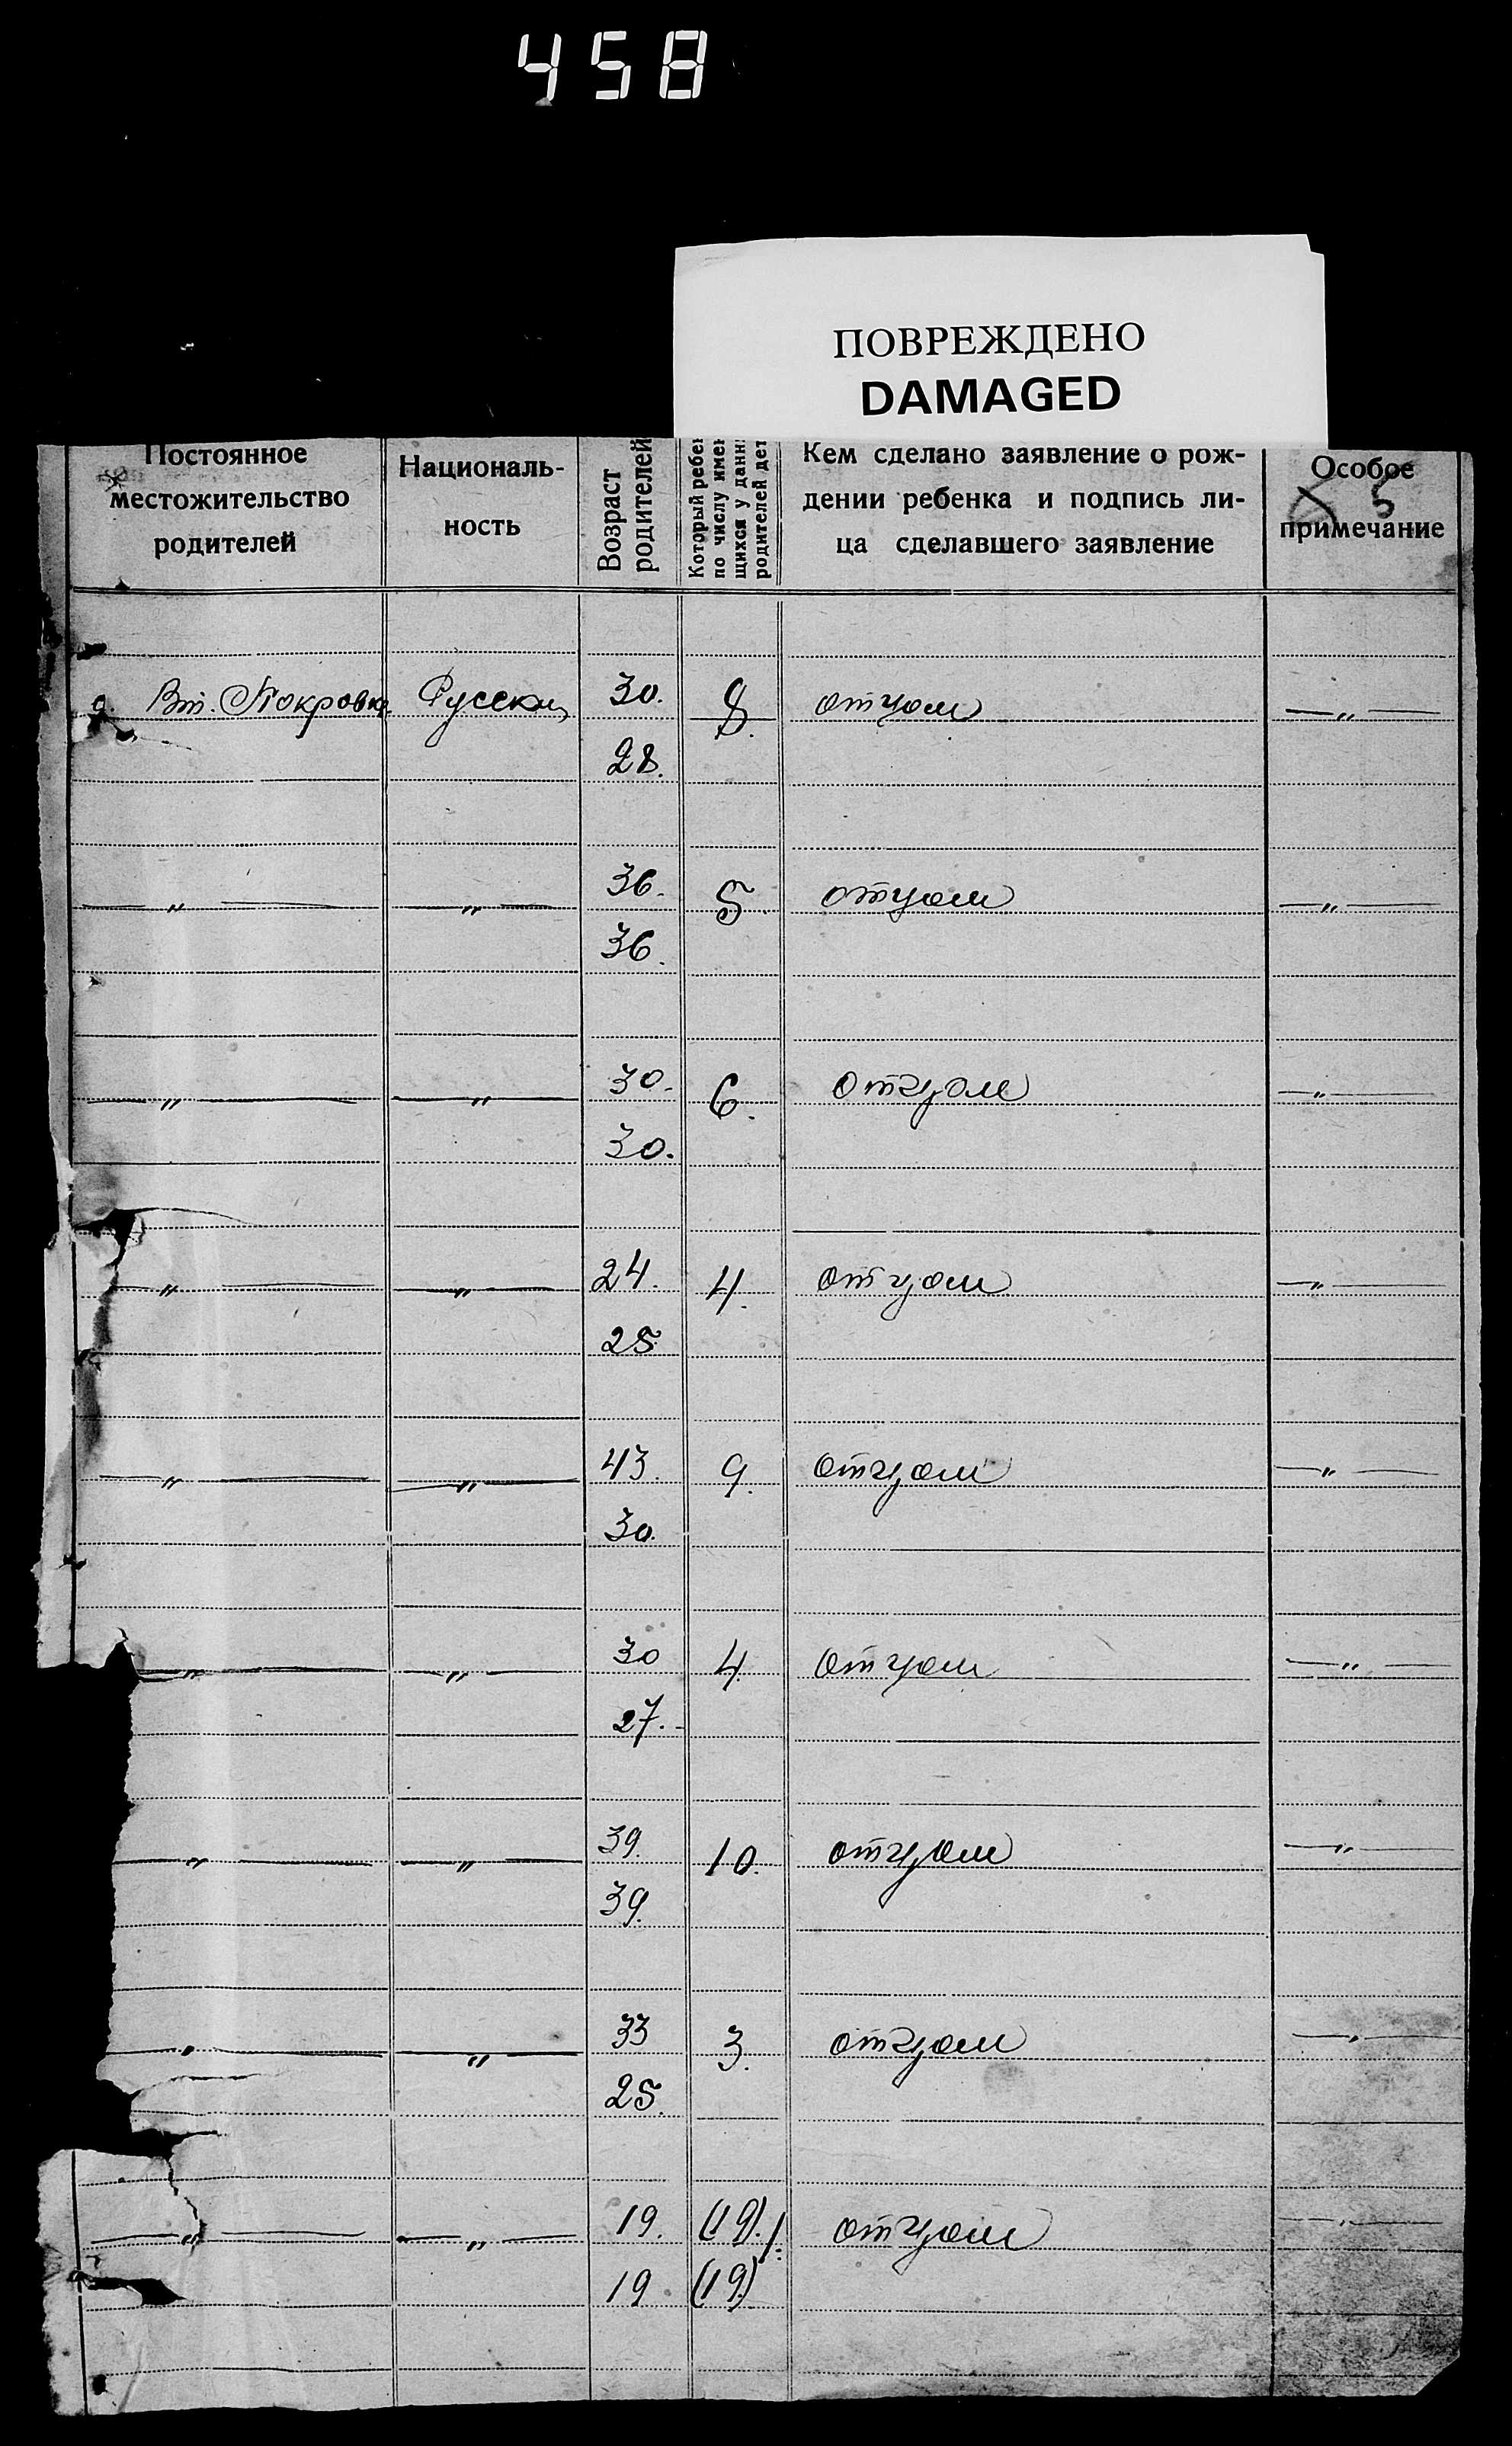 458
ПОВРЕЖДЕНО
DAMAGED
Постоянное местожительство родителей
Националь-ность
Возраст родителей
Который ребен по числу имею щихся у данн родителей дет
Кем сделано заявление о рож-дении ребенка и подпись ли-ца сделавшего заявление
Особое примечание
5
д. Вт. Покровка Русские 30. 8. отцом — „ —
28.
— „ — — „ — 36. 5. отцом — „ —
36.
— „ — — „ — 30. 6. отцом — „ —
30.
— „ — — „ — 24. 4. отцом — „ —
25.
— „ — — „ — 43. 9. отцом — „ —
30.
— „ — — „ — 30 4. отцом — „ —
27.
— „ — — „ — 39. 10. отцом — „ —
39.
— „ — — „ — 33 3. отцом — „ —
25.
— „ — — „ — 19. (19). 1. отцом — „ —
19 (19)